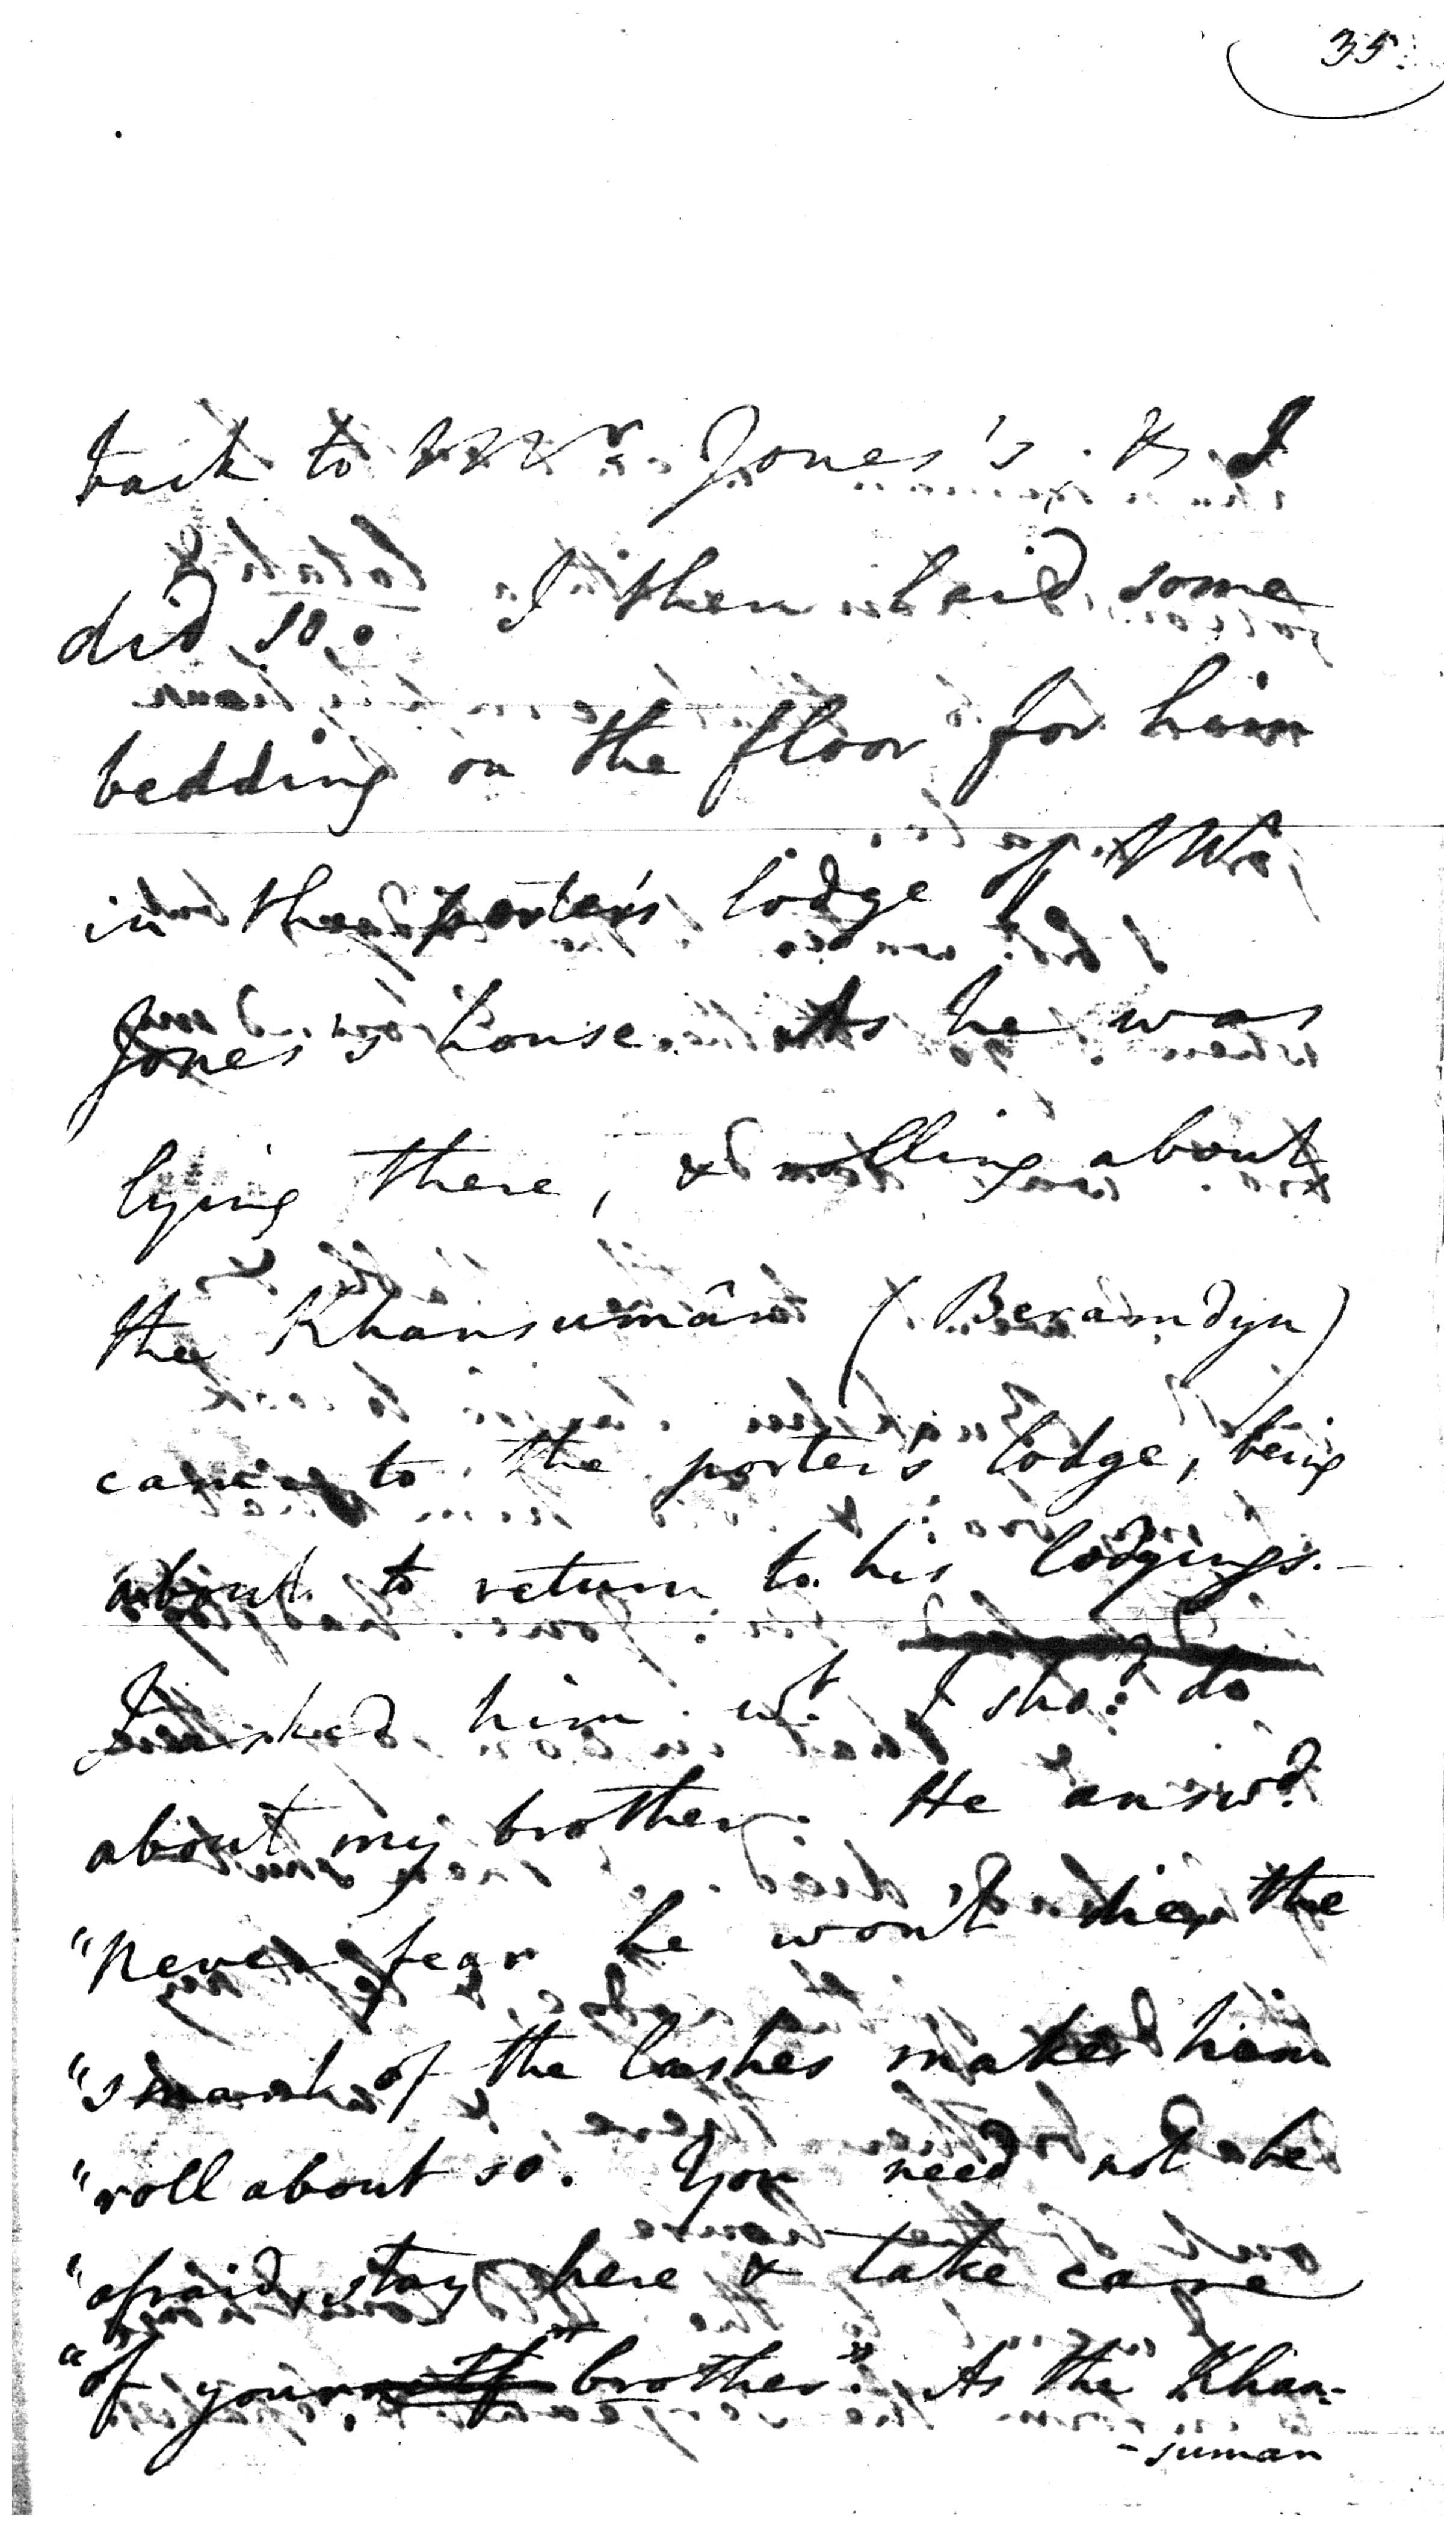 35
back to Mr Jones's. & I
did so. I then laid some
bedding on the floor for him
in the porter's lodge of Mr.
Jones's house. As he was
lying there, & rolling about
the Khansumân (Beramdyn)
came to the porter's lodge, being
about to return to his lodgings.—
I asked him wt. I shod. do
about my brother. He answd.
"Never fear he won't die, the
"smart of the lashes makes him
"roll about so. You need not be
"afraid, stay here & take care
"of your brother." As the Khan-
-suman